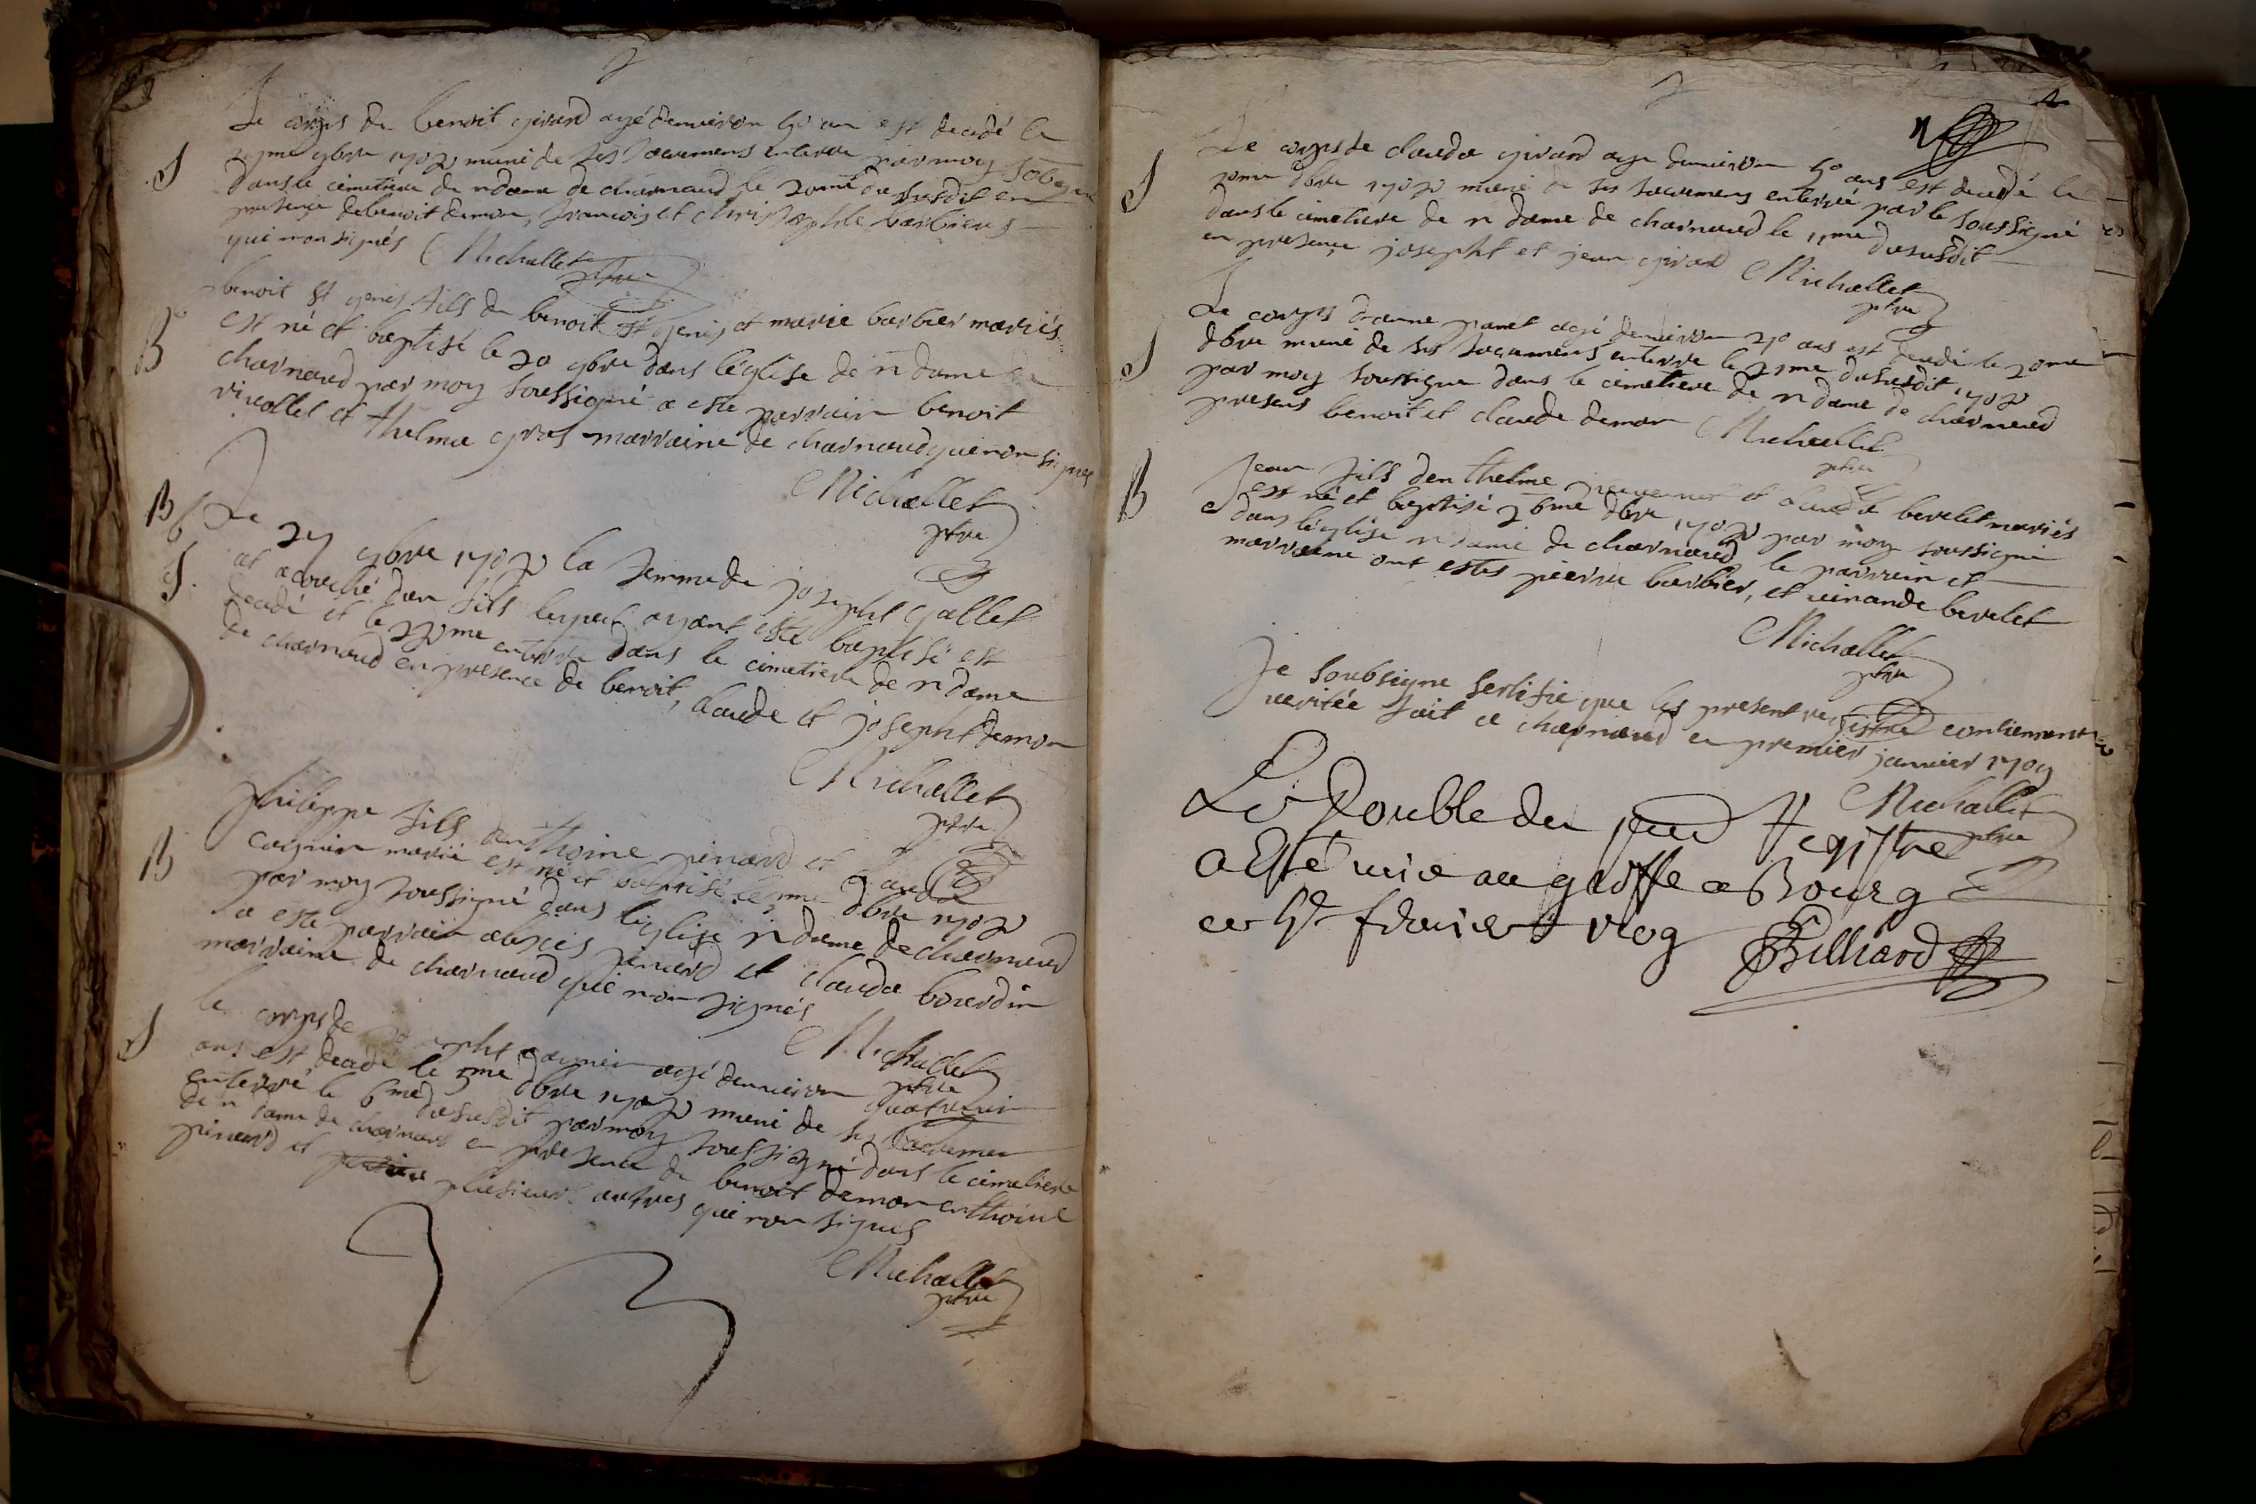 Le corps de benoit girard agé denviron est decedé le
9bre 1708 muni de ses sacremens enterré par moy
dans le cimetiere de n dame de charnaud le 20me du susdit en
presence de benoit demon, francois et christophle barbiers
qui non signés Michallet
ptre
S
benoit st genis fils de benoit st genis et marie barbier mariés
est né et baptisé le 20 9bre dans léglise de n dame de
B
charnaud par moy soussigné a esté parrain benoit
vivollet et thelme gros marraine de charnaud qui non signés
Michallet
ptre
B
Le 27 9bre 1708 la femme de josepht gallet
S.
at accouché dun fils lequel ayant esté baptisé est
decedé et le enterré dans le cimetiere de n dame
de charnaud en presence de benoit, claude et josepht demon
Michallet
ptre
philippe fils denthoine pinard et claude
B
mariés est né et baptisé le dbre 1708
par moy soussigné dans léglise n dame de charnaud
a esté parrain pinard et claude bourdin
marraine de charnaud qui non signés
Michallet
ptre
S
le corps de agé denviron quatrevin
ans est decedé le 5me dbre 1708 muni de ses sacremen
enterré le 6me du susdit par moy soussigné dans le cimetiere
de n dame de charnaud en presence de benoit demon enthoine
pinard et plusieurs autres qui non signes
Michallet
ptre
Le corps de claude girard agé denviron 50 ans est decedé le
S
dbre 1708 muni de ses sacremens enterré par le soussigné
dans le cimetiere de n dame de charnaud le 11me du susdit
en presence josepht et jean girard Michallet
ptre
Le corps danne panet agé denviron ans est decedé le 20me
S
dbre muni de ses sacremens enterré le 21me du susdit 1708
par moy soussigne dans le cimetiere de n dame de charnaud
presens benoit et claude demon Michallet
ptre
B
Jean fils denthelme et claude berelet mariés
est né et baptisé 26me dbre 1708 par moy soussigné
dans léglise n dame de charnaud le parrain et
marraine ont estés pierre barbier, et berelet
Michallet
ptre
Je soubsigne sertifie que les present registre contiennent
veritée fait a charnaud ce premier janvier 1709
Michallet
ptre
Le Double du pnt Registre
a Esté mis au greffe a Bourg
ce fevrier 1709 Billiard